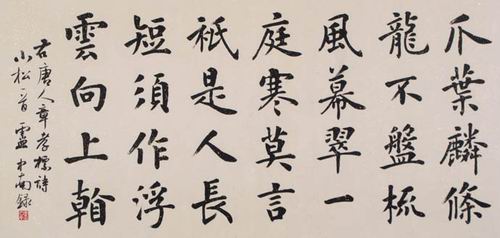 爪葉麟條
龍不盤梳
風幕翠一
庭寒莫言
祇是人長
短須作浮
雲向上
右唐人章孝標詩
小松一首